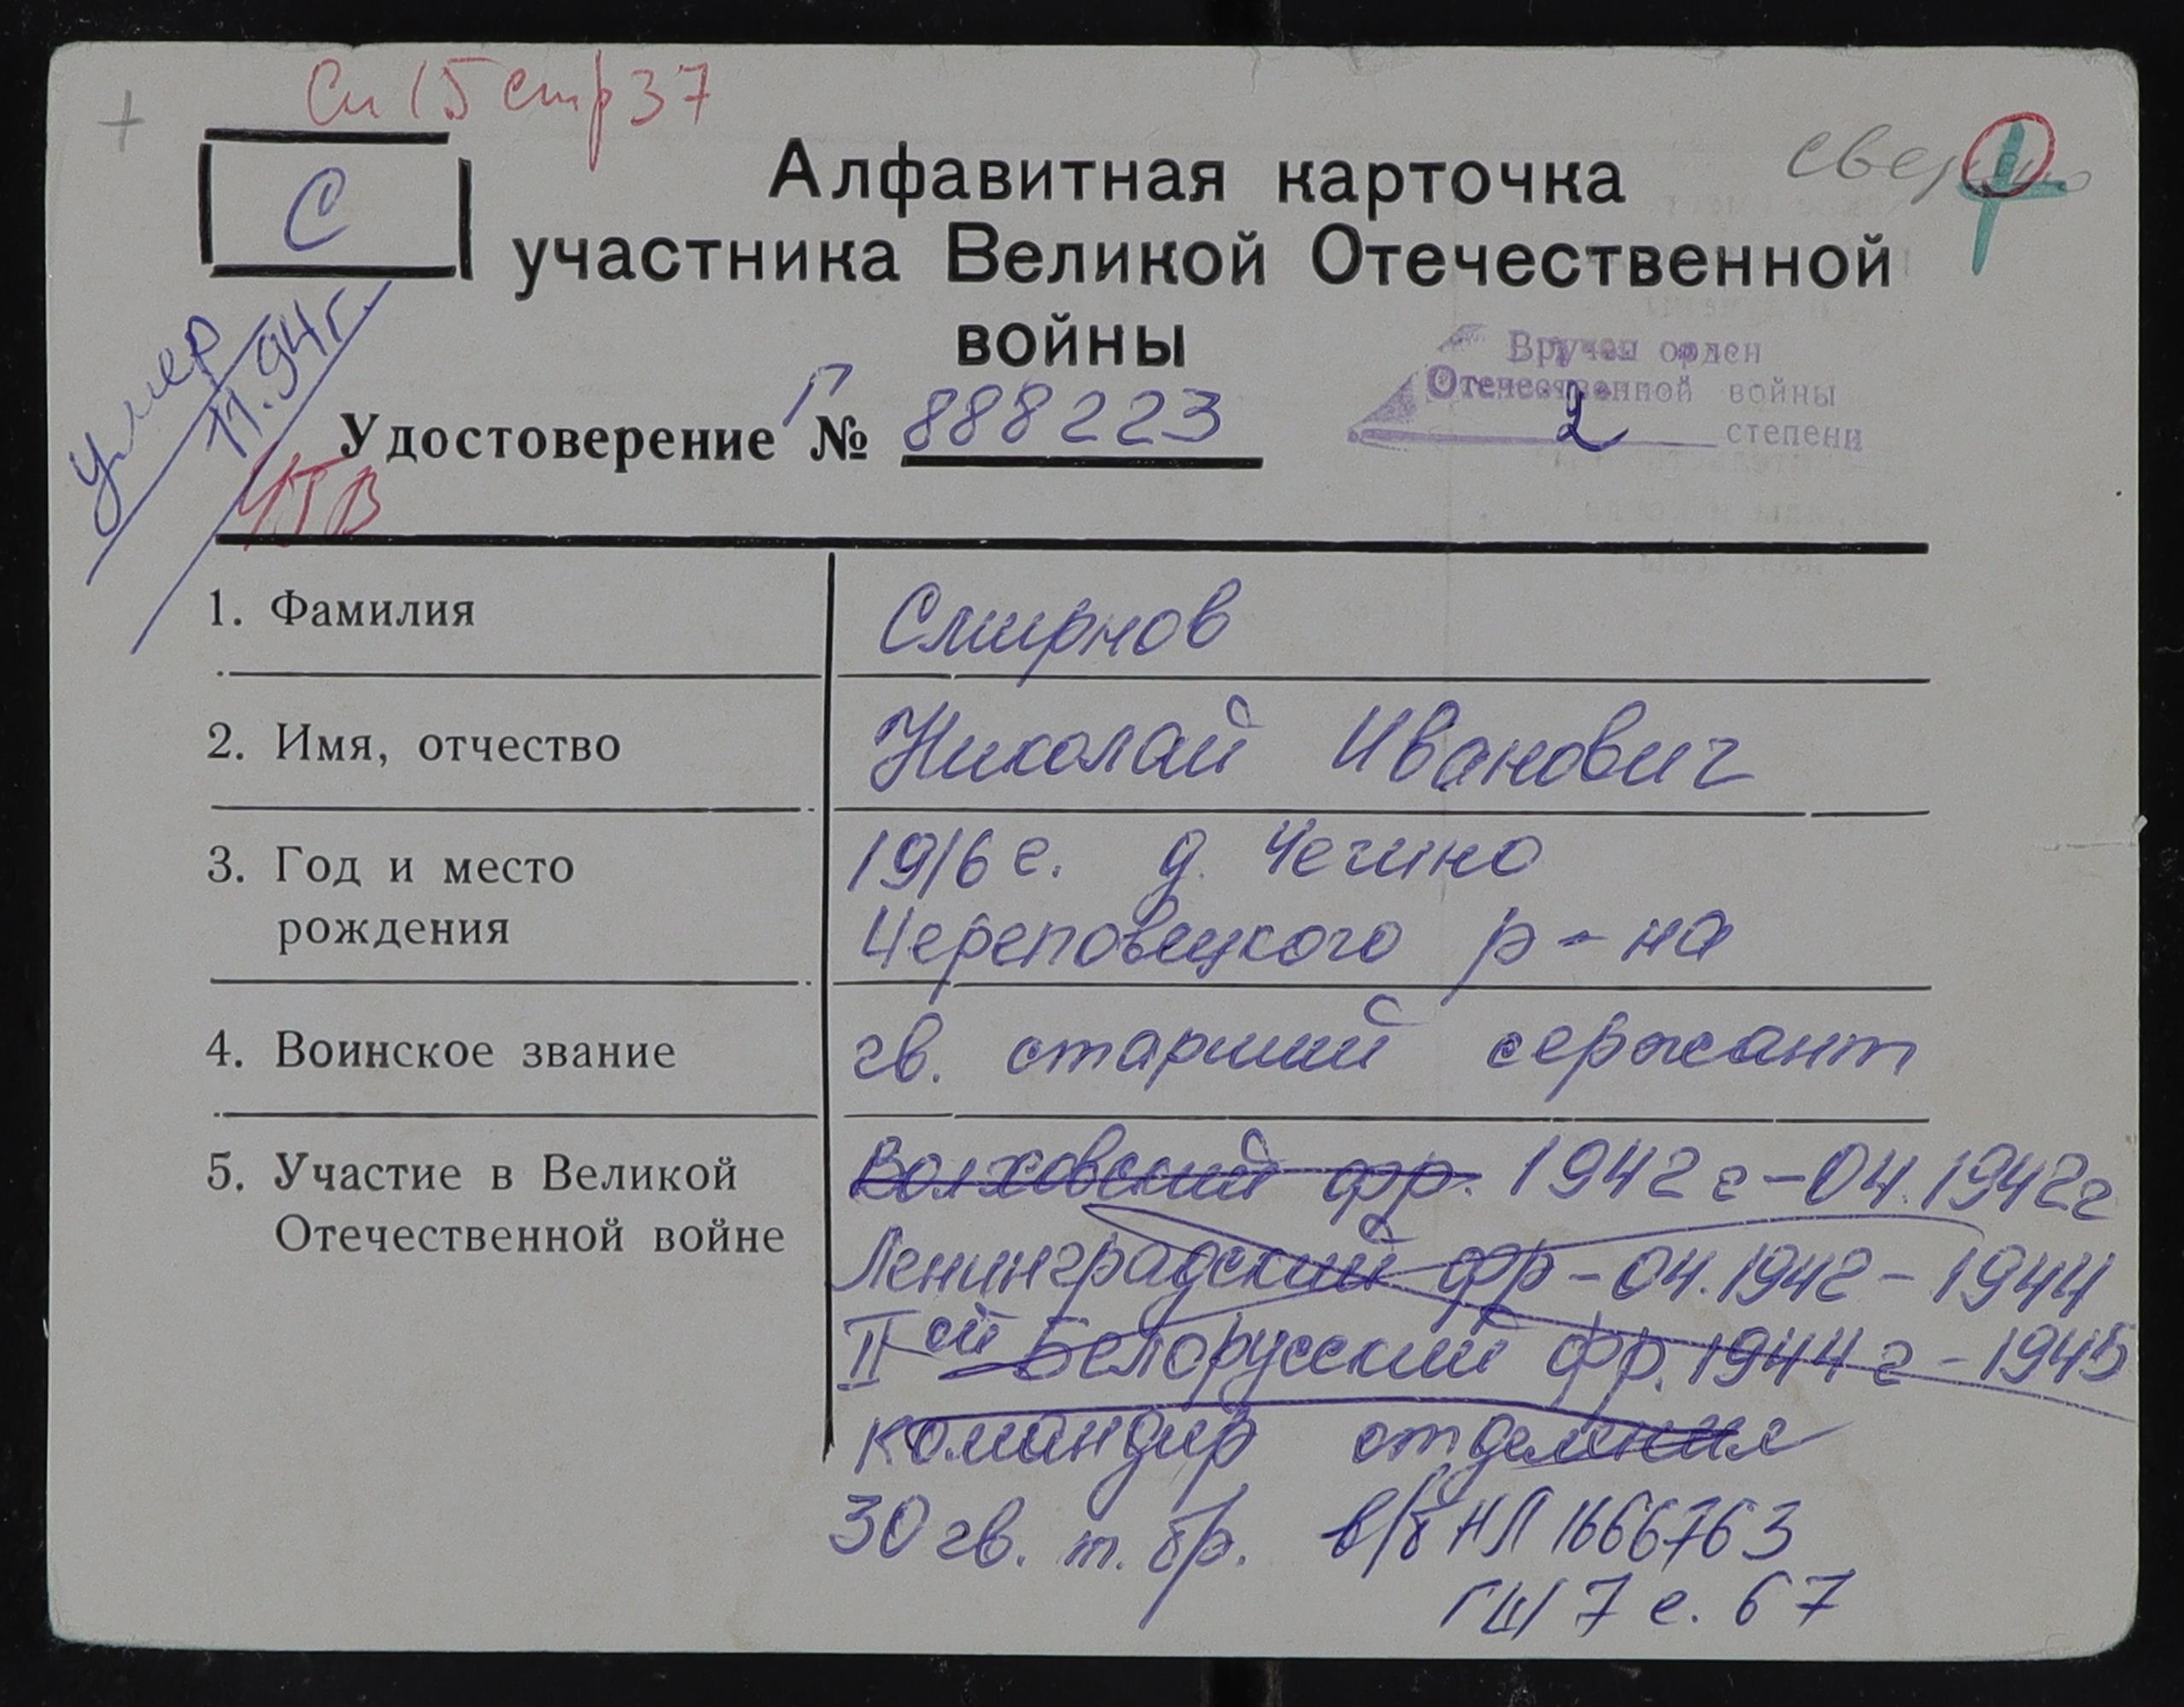 Сп 15 стр 37
С
Алфавитная карточка
участника Великой Отечественной
войны
умер
11.94г.
Вручен орден
Отечественной войны
2 степени
Удостоверение Г № 888223
1. Фамилия
Смирнов
2. Имя, отчество
Николай Иванович
3. Год и место
рождения
1916 г. д. Чегино
Череповецкого р-на
4. Воинское звание
гв. старший сержант
5. Участие в Великой
Отечественной войне
Волховский фр. 1942 г - 04.1942г
Ленинградский фр - 04.1942 - 1944
II ой Белорусский фр. 1944 г - 1945
командир отделения
30 гв. т. бр. в/б НЛ 1666763
ГШ 7 с. 67